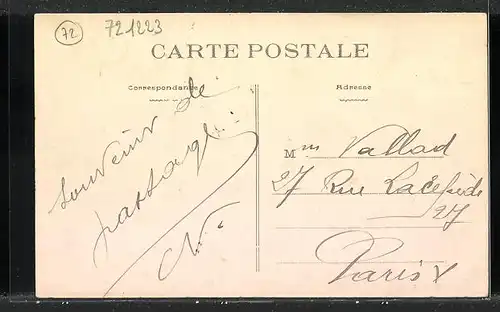 72
721223
CARTE POSTALE
Correspondance
Adresse
souvenir de
passage
Mm Vallad
27 Rue Lacépède
27
Paris V